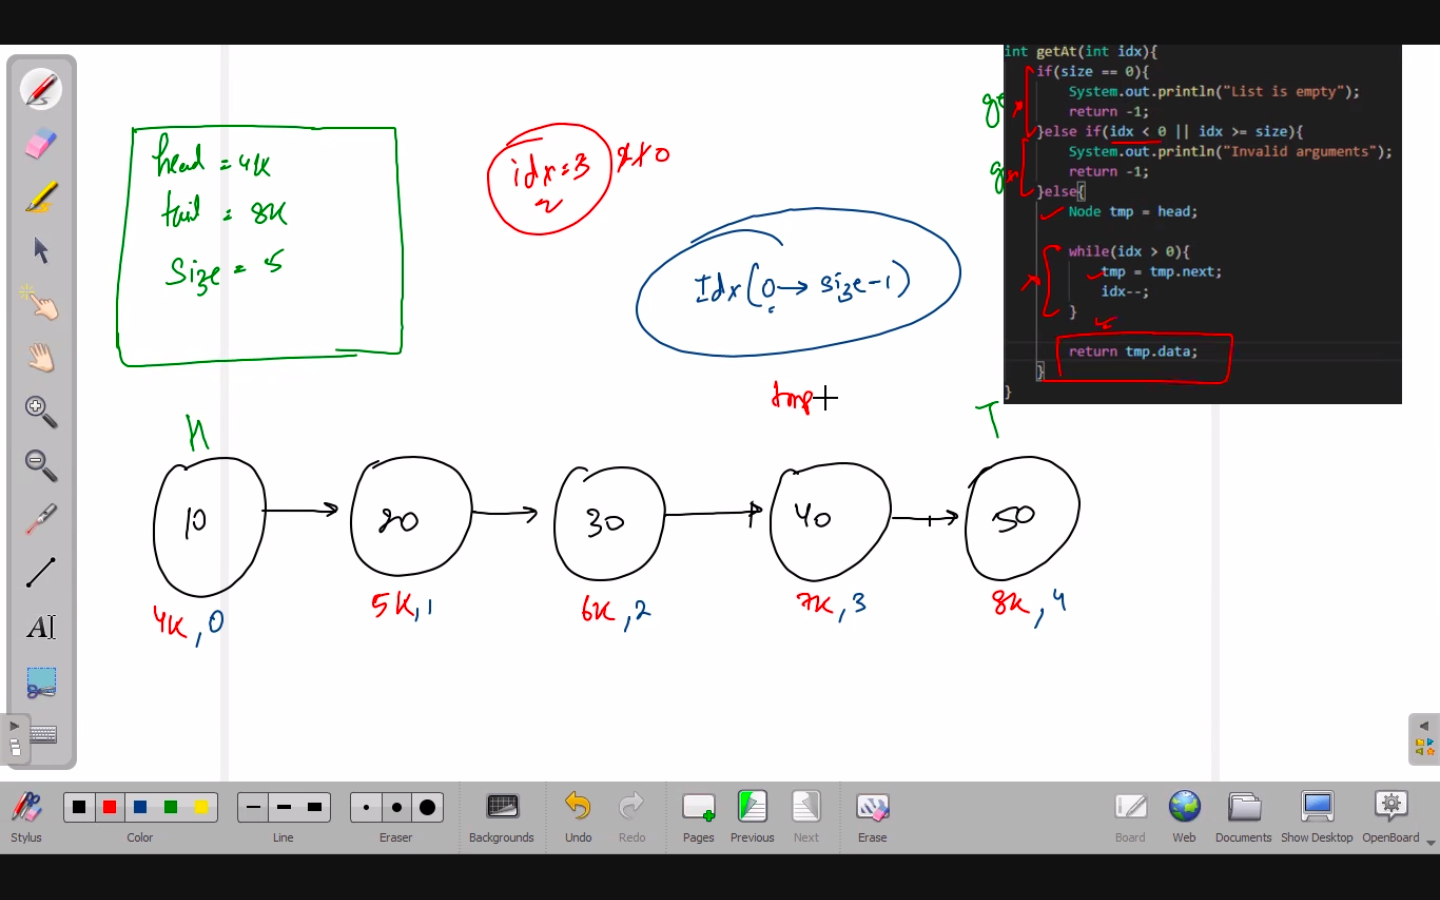 head = 4K
tail = 8K
Size = 5
idx=3
2
0
Idx(0→ size-1)
int getAt(int idx){
if(size == 0){
System.out.println("List is empty");
return -1;
}else if(idx < 0 || idx >= size){
System.out.println("Invalid arguments");
return -1;
}else{
Node tmp = head;
while(idx > 0){
tmp = tmp.next;
idx--;
}
return tmp.data;
}
}
tmp
H
T
10
20
30
40
50
4K, 0
5K,1
6K,2
7K, 3
8K, 4
Stylus
Color
Line
Eraser
Backgrounds
Undo
Redo
Pages
Previous
Next
Erase
Board
Web
Documents
Show Desktop
OpenBoard